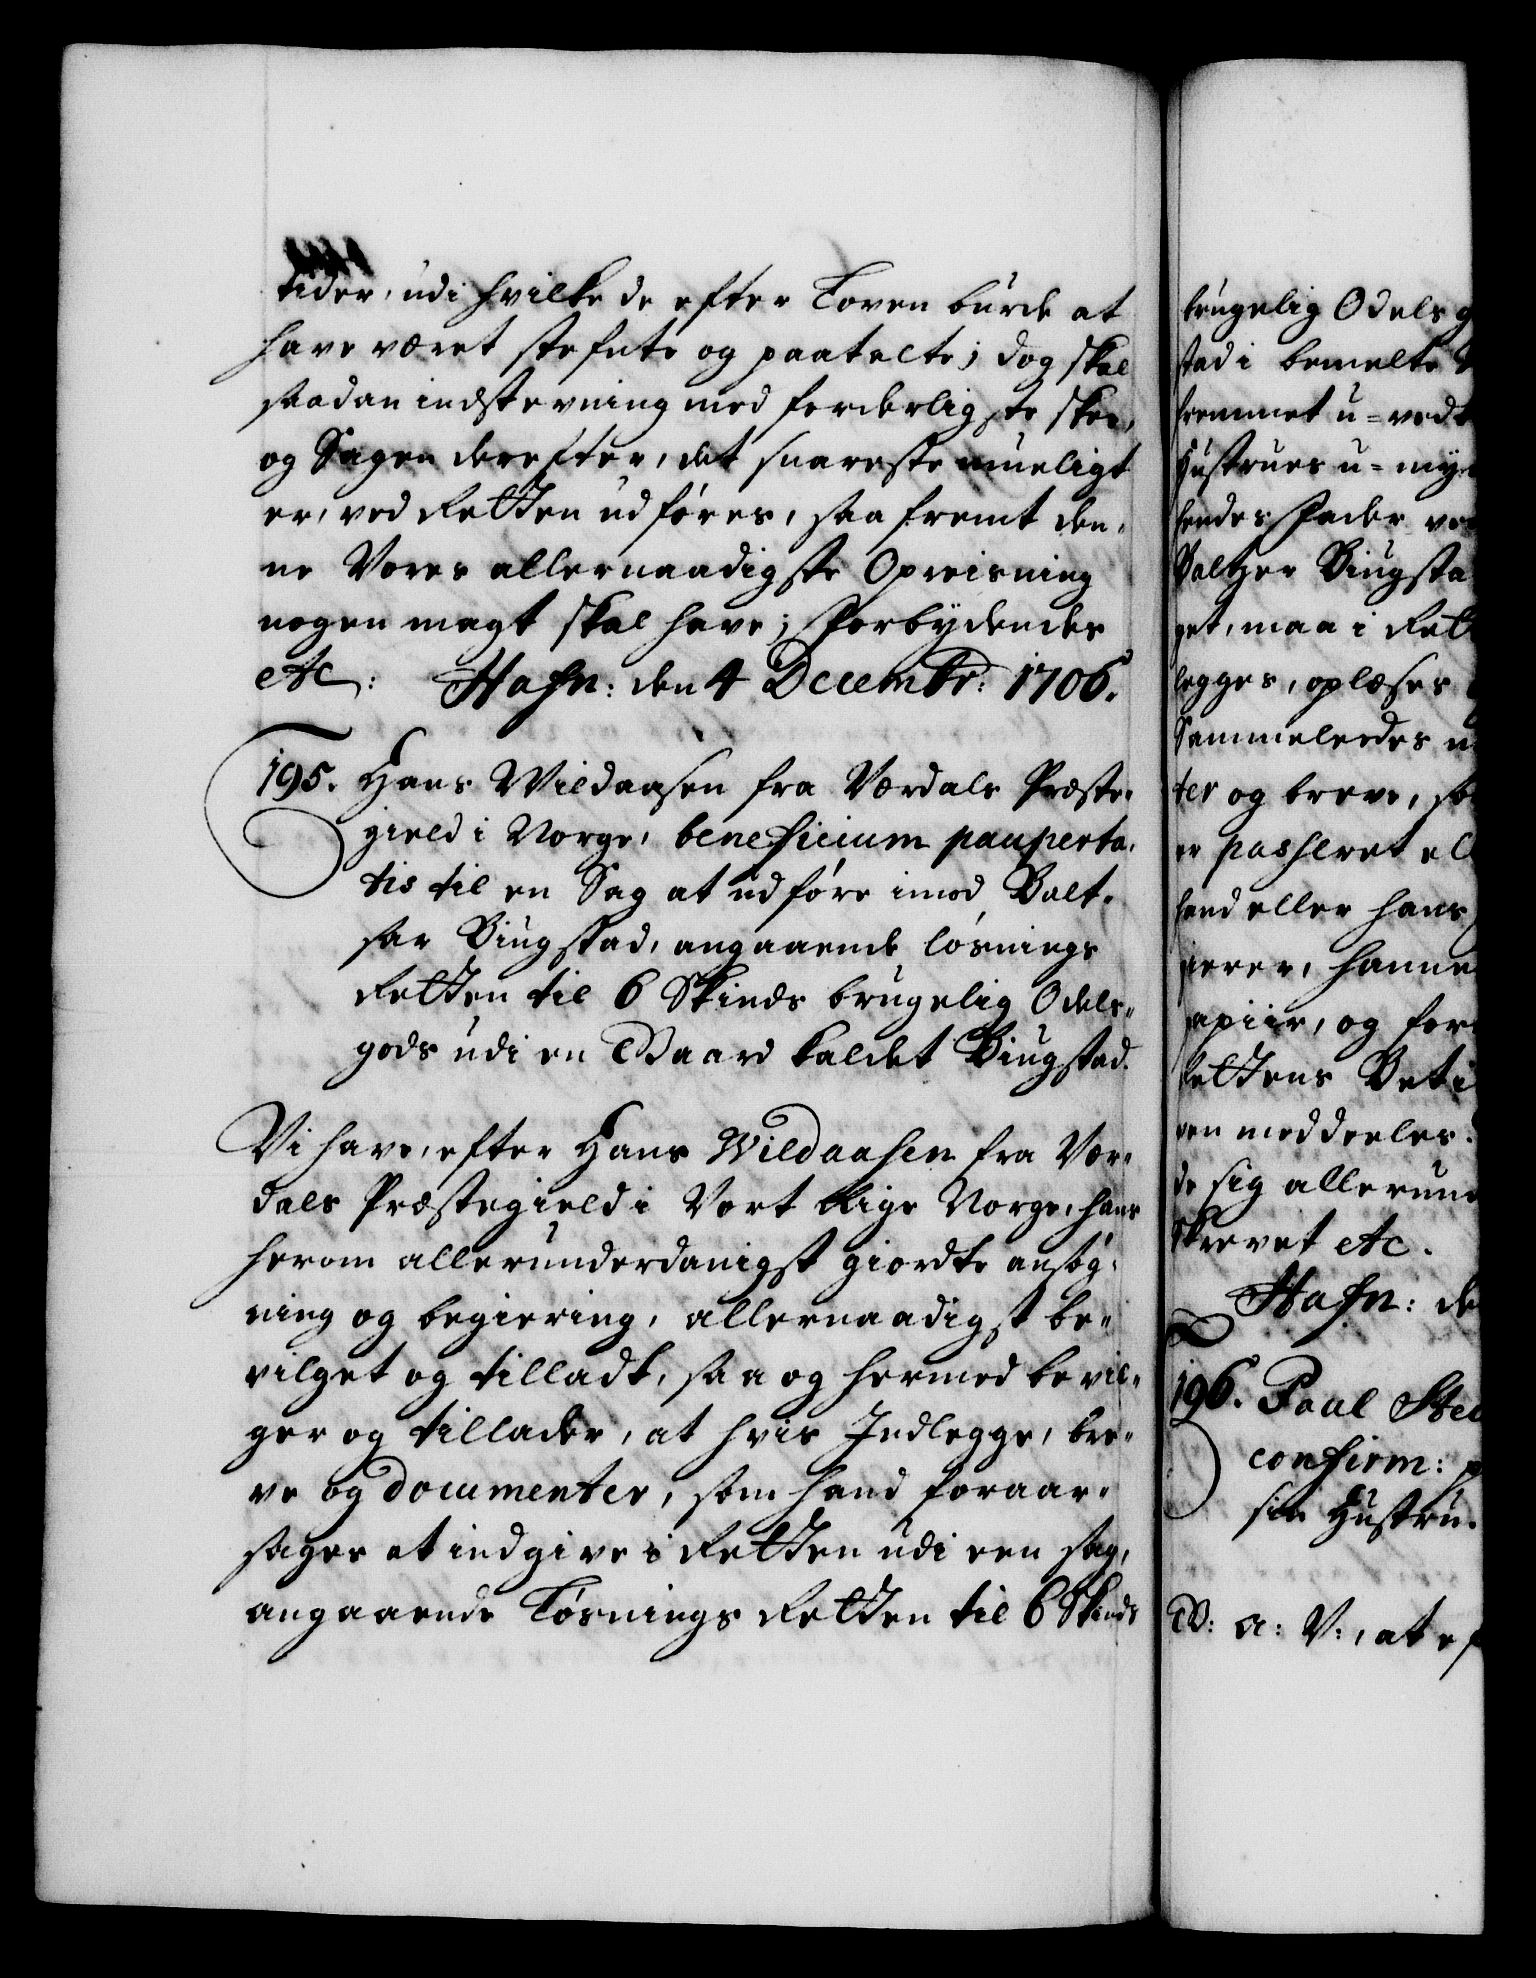 tider, udi hvilke de efter Loven burde at
have været stefnte og paatalte; dog skal
saadan indstevning med forderligste skee,
og Sagen derefter, det snareste mueligt
er, ved Retten udføres, saa fremt den,
ne Vores allernaadigste Opreisning
nogen magt skal have; Forbydendes
etc: Hafn: den 4 Decembr: 1706.
195. Hans Wildaasen fra Værdals Præste,
gield i Norge, beneficium pauperta,
tis til en Sag at udføre imod Balt,
sar Biugstad, angaaende løsnings
Retten til 6 Skinds brugelig Odels,,
gods udi en Gaard kaldet Biugstad.
Vi have, efter Hans Wildaasen fra Vær,
dals Præstegield i Vort Rige Norge, hans
herom allerunderdanigst giordte ansøg,
ning og begiering, allernaadigst be,,
vilget og tilladt, saa og hermed bevil,,
ger og tillader, at hvis Indlegge, bre,,
ve og documenter, som hand foraar,
sages at indgive i Retten udi een sag,
angaaende Løsnings Retten til 6 Skinds
brugelig Odels g
stad i bemelte
fremmet u=vedk
Hustrues u=myn
hendes Fader
Baltzer Biugsta
get, maa i Rett
legges, oplæses
Sammeledes
ter og breve, so
er passeret ell
hand eller hans
hanne
papiir, og for
Rettens Beti
ven meddeeles.
de sig allerund
Skrevet etc.
Hafn: de
196. Poul Ste
confirm:
sin Hustru.
G: A: V:, at ef